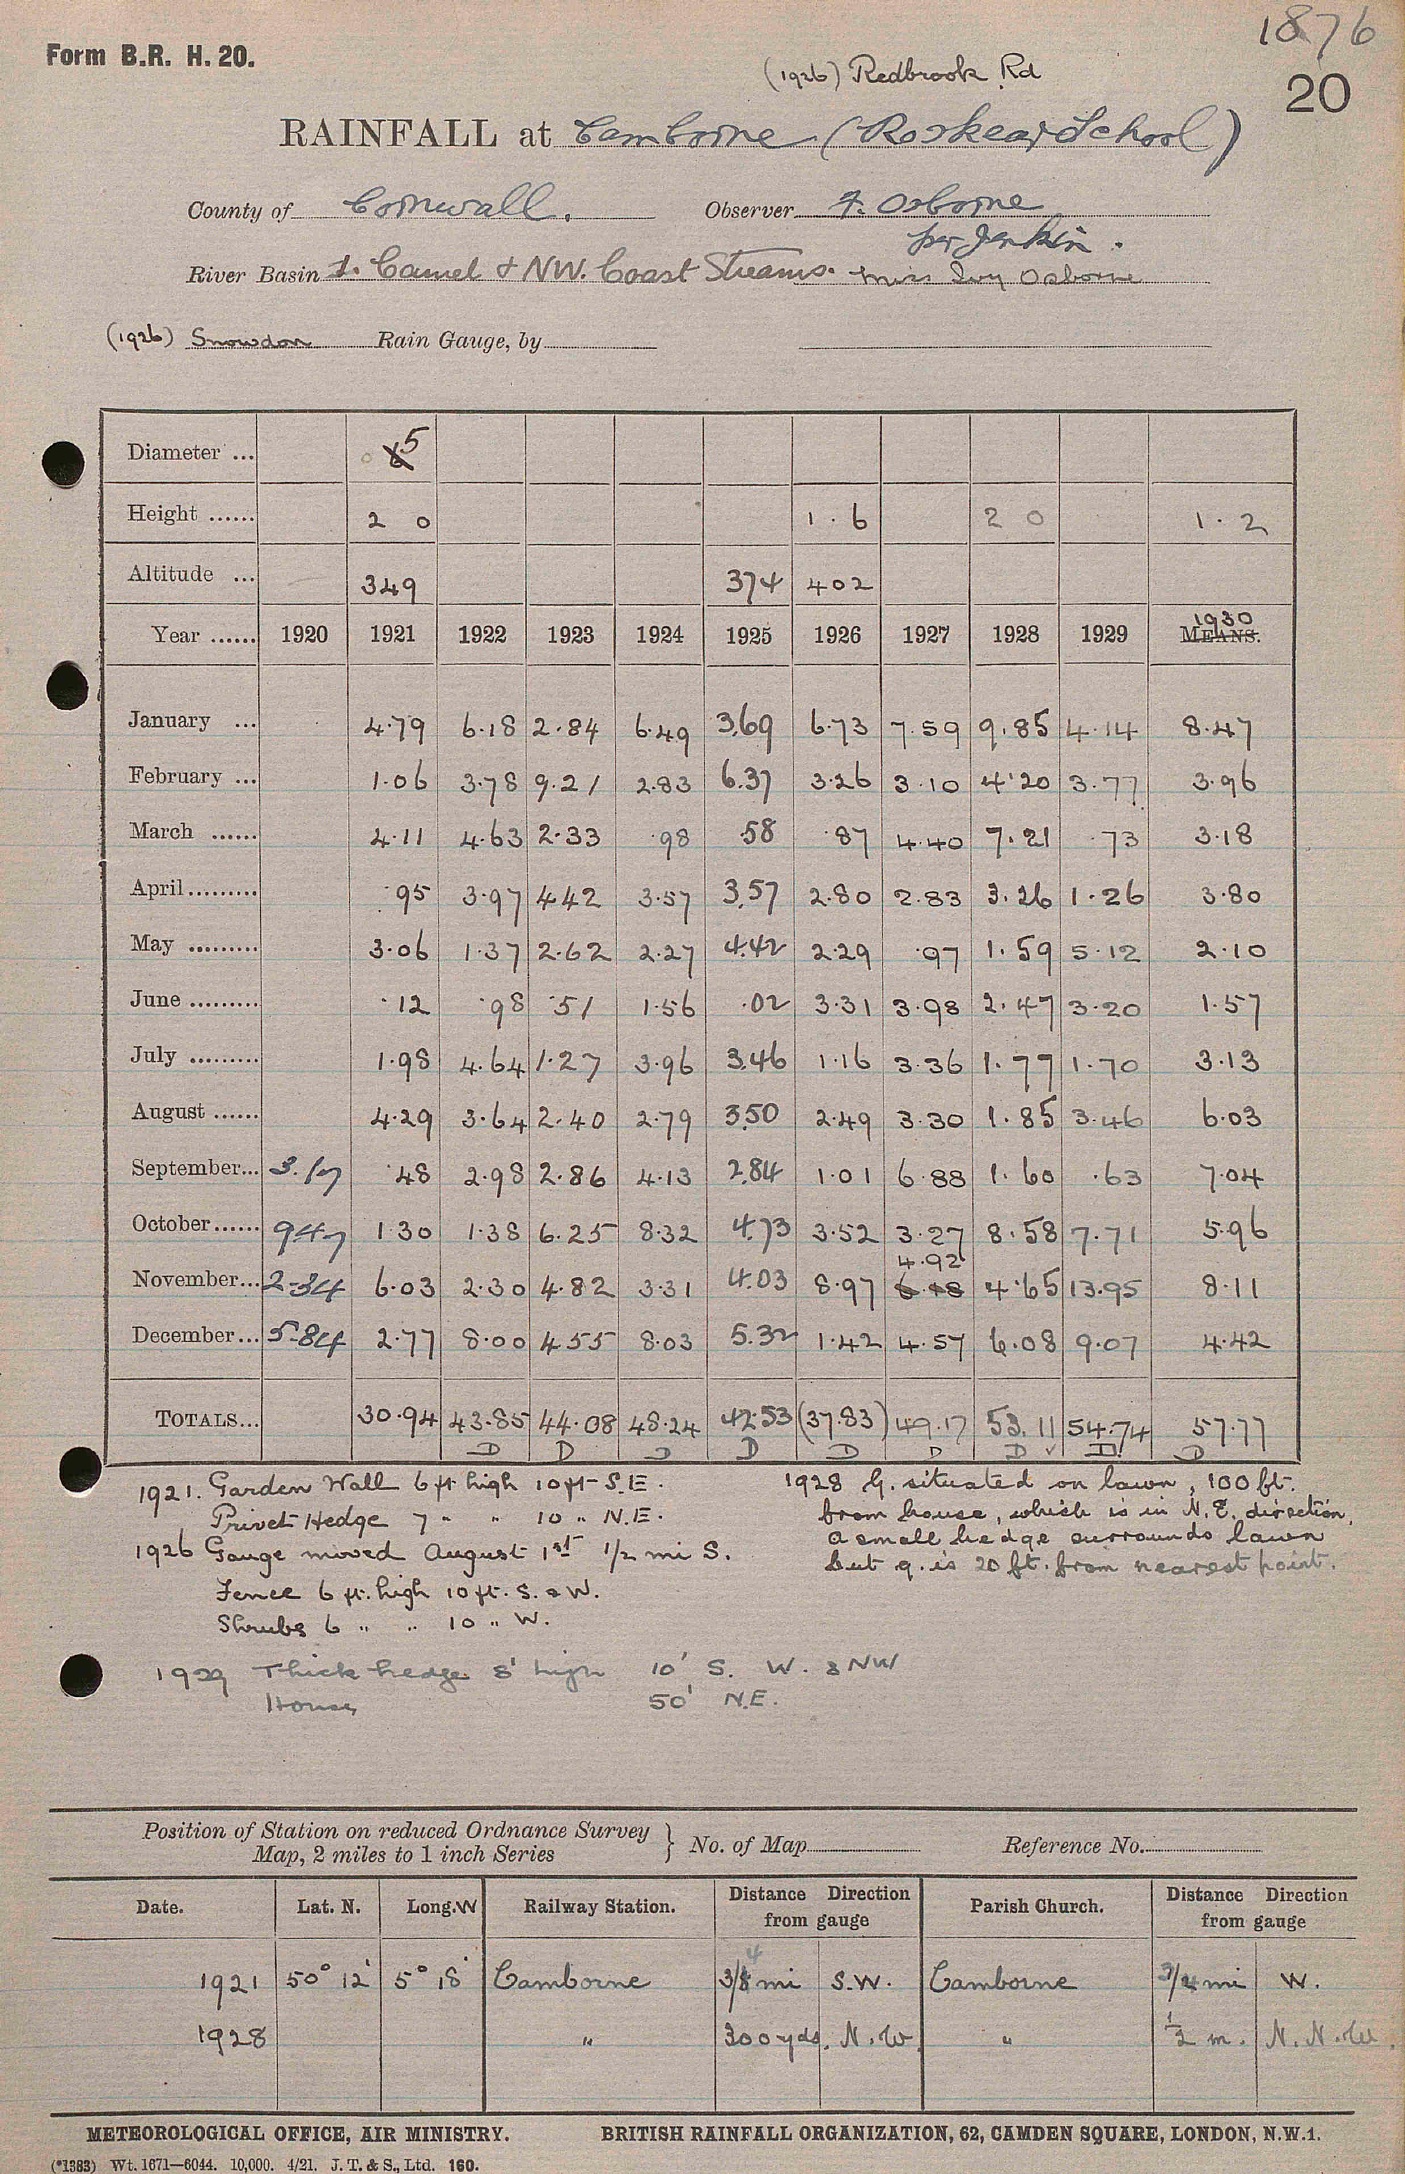 1876
Form B.R. H. 20.
(1926) Redbrook Rd
20
RAINFALL at Camborne (Roskear School)
County of Cornwall. Observer F. Osborne
per Jenkin.
River Basin 1. Camel & NW. Coast Streams. Miss Ivy Osborne
(1926) Snowdon Rain Gauge, by
Diameter ... 5
Height ...... 2 0 1.6 2 0 1.2
Altitude ... 349 374 402
1930
Year ...... 1920 1921 1922 1923 1924 1925 1926 1927 1928 1929 MEANS.
January ... 4.79 6.18 2.84 6.49 3.69 6.73 7.59 9.85 4.14 8.47
February ... 1.06 3.78 9.21 2.83 6.37 3.26 3.10 4.20 3.77 3.96
March ...... 4.11 4.63 2.33 .98 .58 .87 4.40 7.21 .73 3.18
April......... .95 3.97 4.42 3.57 3.57 2.80 2.83 3.26 1.26 3.80
May ......... 3.06 1.37 2.62 2.27 4.42 2.29 .97 1.59 5.12 2.10
June ......... .12 .98 .51 1.56 .02 3.31 3.98 2.47 3.20 1.57
July ......... 1.98 4.64 1.27 3.96 3.46 1.16 3.36 1.77 1.70 3.13
August ...... 4.29 3.64 2.40 2.79 3.50 2.49 3.30 1.85 3.46 6.03
September... 3.17 .48 2.98 2.86 4.13 2.84 1.01 6.88 1.60 .63 7.04
October...... 9.47 1.30 1.38 6.25 8.32 4.73 3.52 3.27 8.58 7.71 5.96
4.92
November... 2.34 6.03 2.30 4.82 3.31 4.03 8.97 4.65 13.95 8.11
December... 5.84 2.77 8.00 4.55 8.03 5.32 1.42 4.57 6.08 9.07 4.42
TOTALS... 30.94 43.85 44.08 48.24 42.53 (37.83) 49.17 53.11 54.74 57.77
D D D D D D D ✓ D D
1921. Garden Wall 6 ft high 10 ft S.E.
Privet Hedge 7 " " 10 " N.E.
1926 Gauge moved August 1st 1/2 mi S.
Fence 6 ft. high 10 ft. S. & W.
Shrubs 6 " " 10 " W.
1928 G. situated on lawn, 100 ft.
from house, which is in N.E. direction,
a small hedge surrounds lawn
but g. is 20 ft. from nearest point.
1929 Thick hedge 8' high 10' S. W. & NW
House 50' N.E.
Position of Station on reduced Ordnance Survey
Map, 2 miles to 1 inch Series } No. of Map Reference No.
Date. Lat. N. Long. W Railway Station. Distance Direction from gauge Parish Church. Distance Direction from gauge
4
1921 50° 12' 5° 18' Camborne 3/8 mi S.W. Camborne 3/4 mi W.
1928 " 300 yds. N.W. " 1/2 m. N.N.W.
METEOROLOGICAL OFFICE, AIR MINISTRY. BRITISH RAINFALL ORGANIZATION, 62, CAMDEN SQUARE, LONDON, N.W.1.
(*1383) Wt. 1671—6044. 10,000. 4/21. J. T. & S., Ltd. 160.